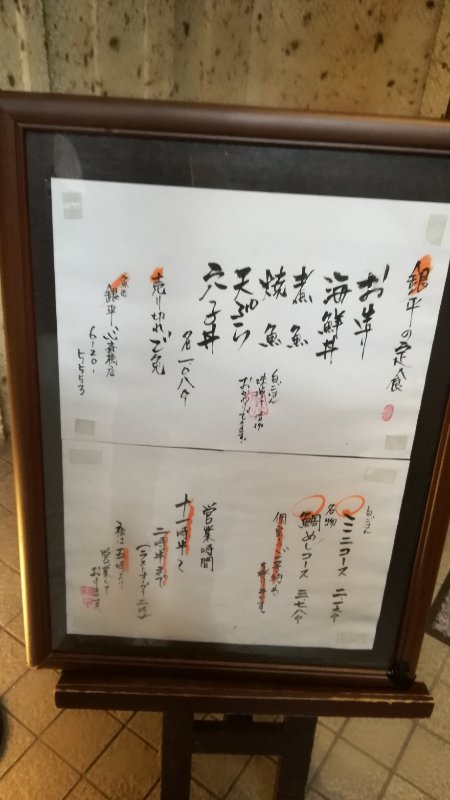 銀平の定食
お造り
海鮮丼
煮魚
焼魚
天ぷら
穴子丼
各一〇八〇
白ごはん
味噌汁
おかわりできます。
売り切れご免
銀平 心斎橋店
6120-
5553
白ごはん
ミニコース 二一六〇
名物
鯛めしコース 三七八〇
個室もご予約
営業時間
十一時半〜
二時半まで
(ラストオーダー二時)
夜は五時より
営業して
おります。